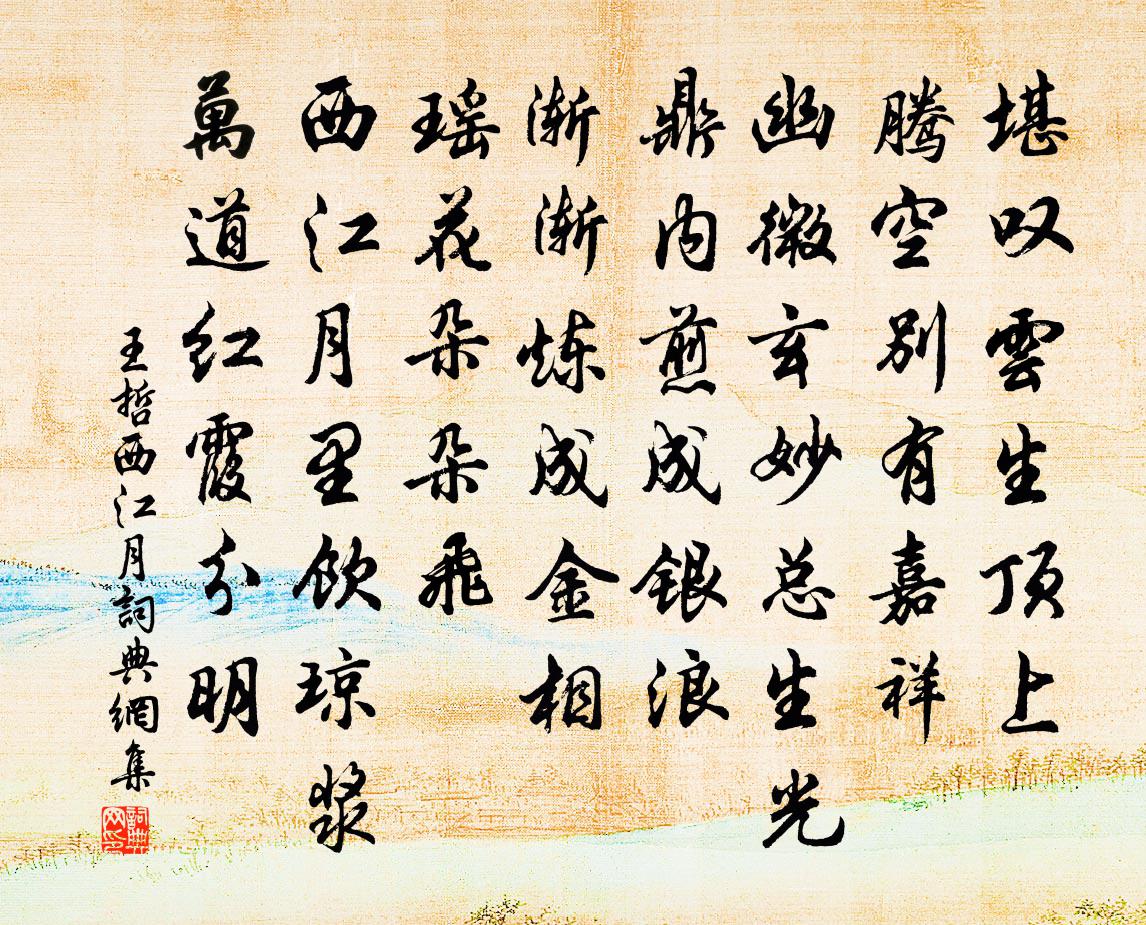 堪叹雲生顶上
腾空别有嘉祥
幽微玄妙总生光
鼎内煎成银浪
渐渐炼成金相
瑶花朵朵飛
西江月里飲琼漿
萬道红霞分明
王哲西江月詞典網集
詞典